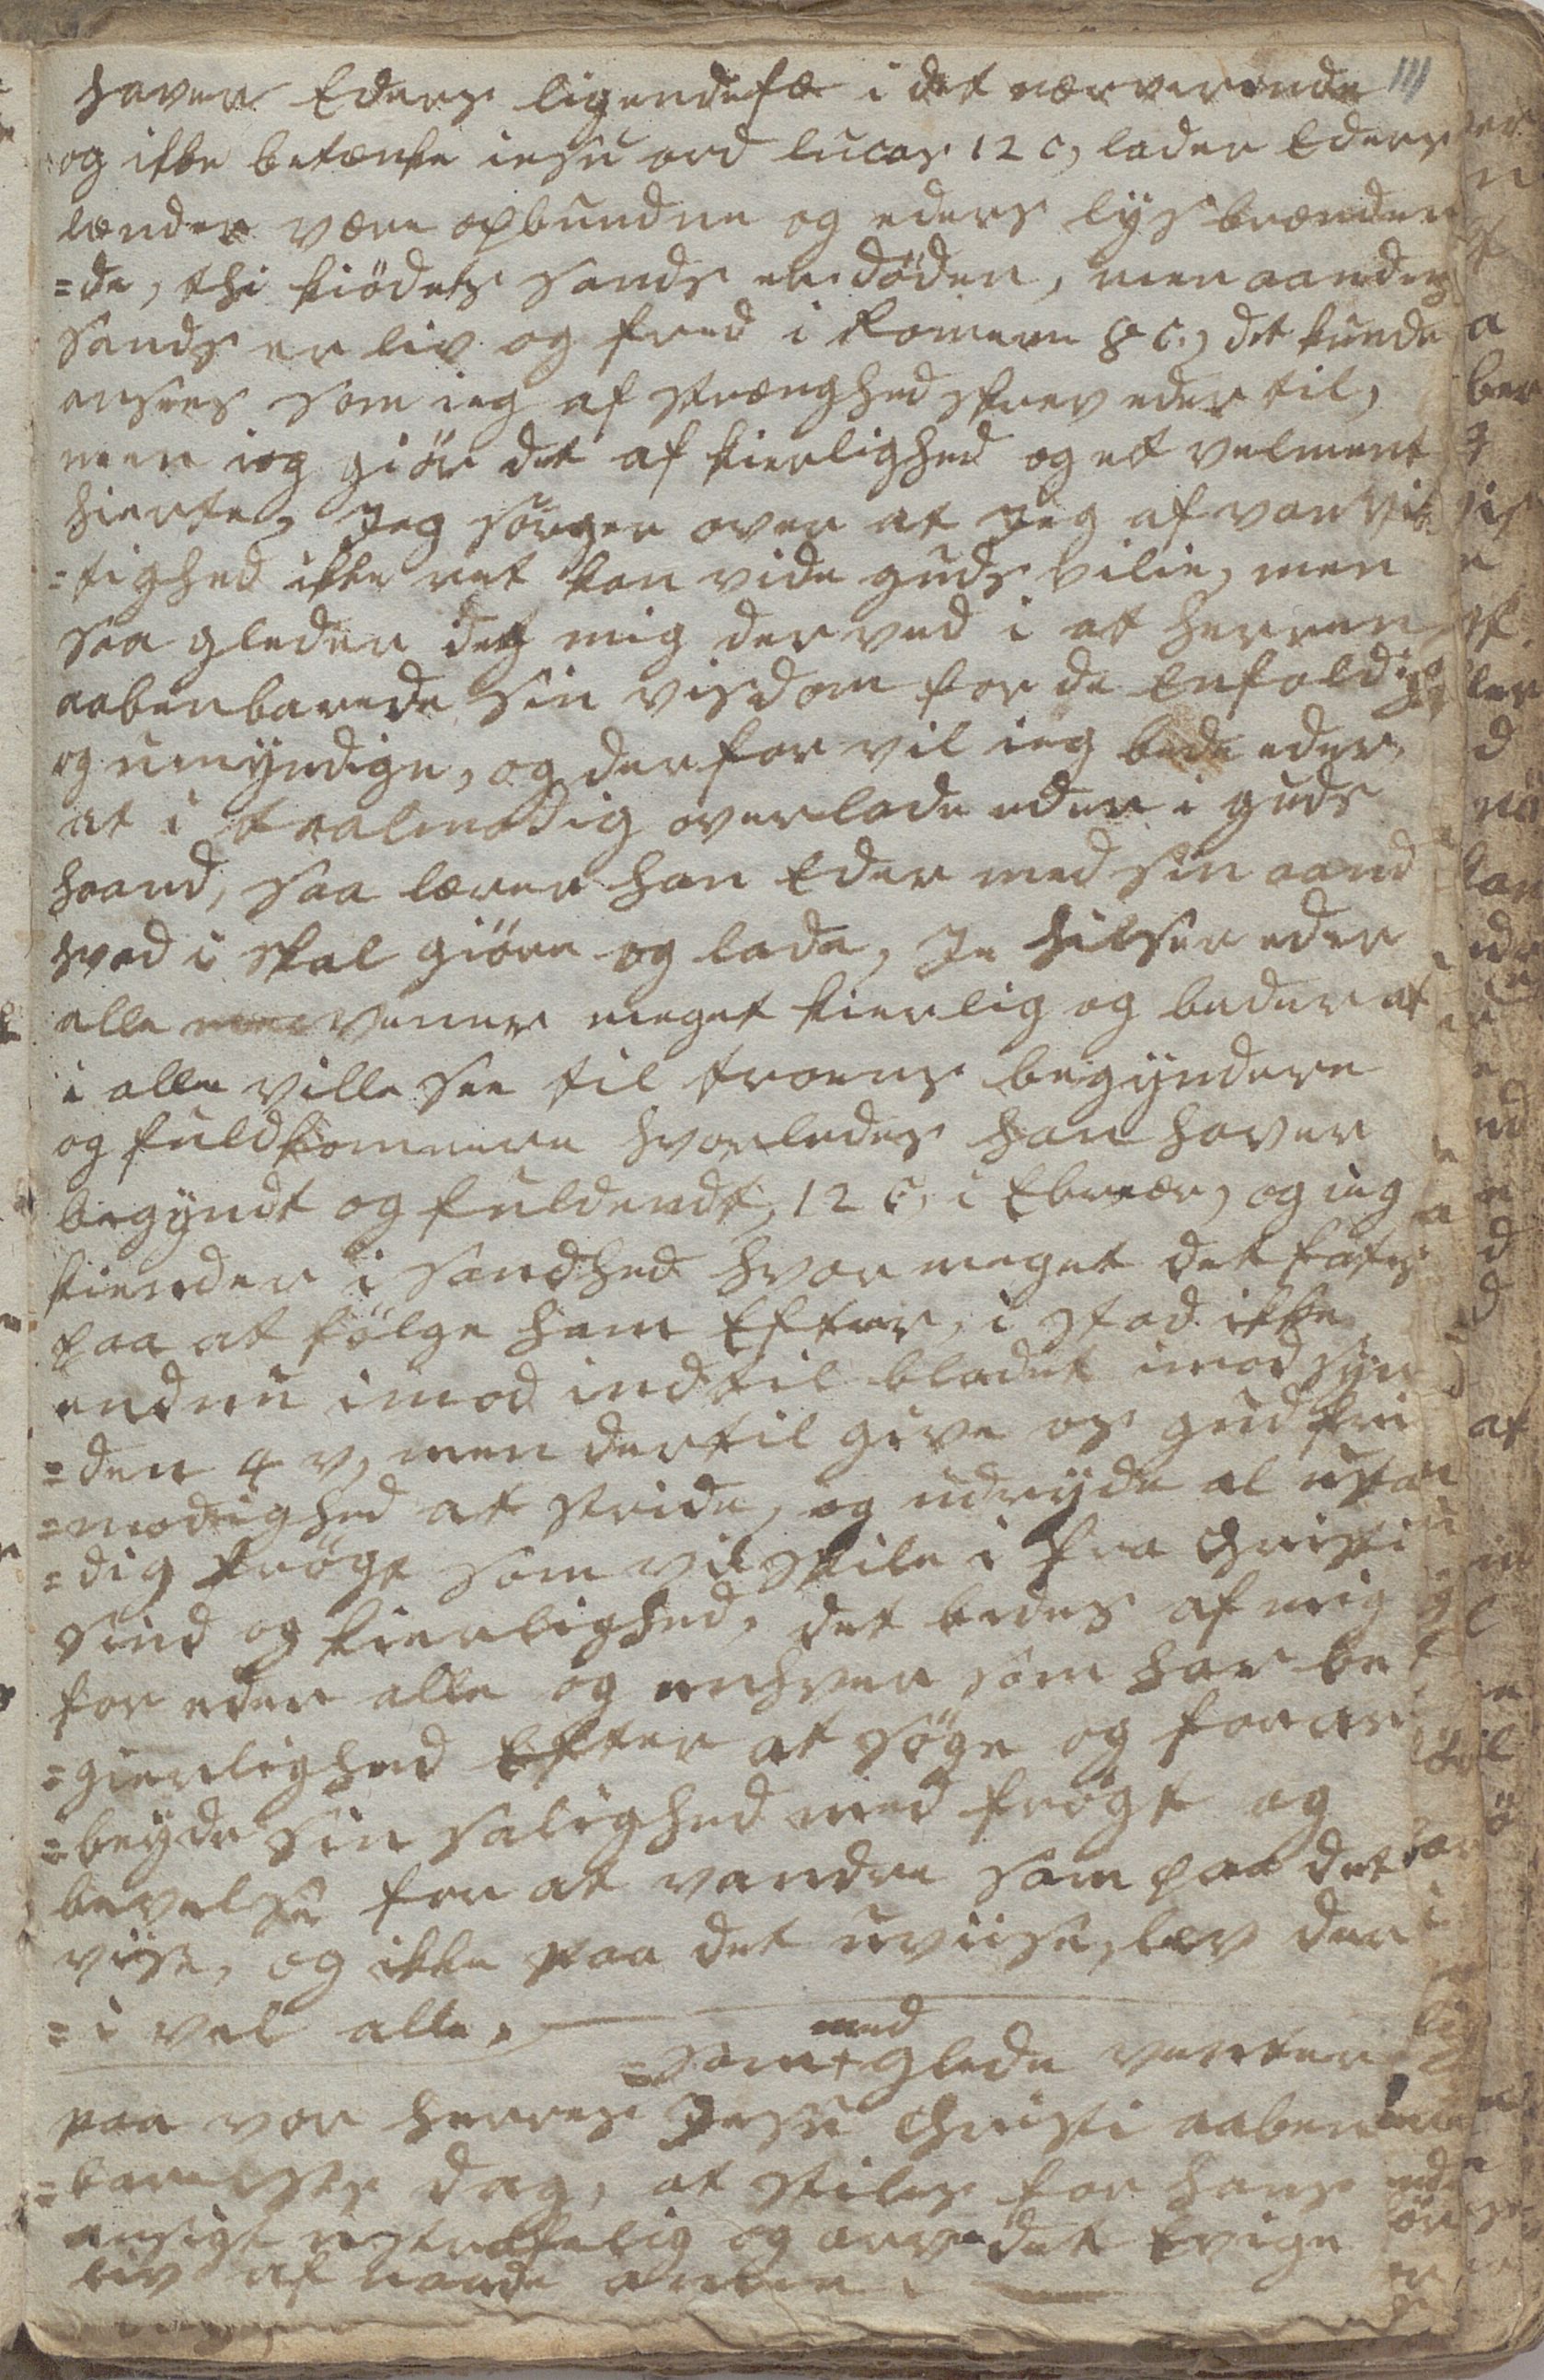 111
haver Eders ligendefæ i det nærverende
og ikke betænke iesu ord lucas 12 c, lader Eders
lænder være opbundne og eders lys brænden
=de, thi kiödets sands er döden, men aandens
sands er liv og fred i Romern 8 c, det kunde
ansees som ieg af strænghed skrev eder til,
men ieg giör det af kierlighed og et velment
hierte, Jeg sörger over at Jeg af vanvit
=tighed ikke ret kan vide guds vilie, men
saa gleder det mig derved i at herren
aabenbarede sin visdom for de Enfoldige
og umyndige, og derfor vil ieg bede eder,
at i taalmodig overlade eder i guds
haand, saa lærer han Eder med sin aand
hvad i skal giöre og lade, Je hilser eder
alle venner meget kierlig og beder at
i alle ville see til troens begyndere
og fuldkommere hvorledes han haver
begyndt og fuldendt, 12 c, i Ebreær, og ieg
kiender i sandhed hvor meget det fates
paa at fölge ham Efter, i stod ikke
endnu imod indtil blodet imod syn
=den 4 v, men dertil give os gud fri
=modighed at stride, og udryde al ustan
=dig frögt som vil skile i fra Christi
sind og kierlighed, det bedes af mig
for eder alle og enhver som har be
=gierlighed Efter at söge og forar
=beyde sin salighed med frögt og
bevelse for at vandre som paa det
viise, og ikke paa det uviise, lev der
=i vel alle,
med
=som+ glede venter
paa vor herres Jesu Christi aaben
=barelses dag, at stiles for hans
ansigt ustrafelig og arve det Evige
liv af naade amen